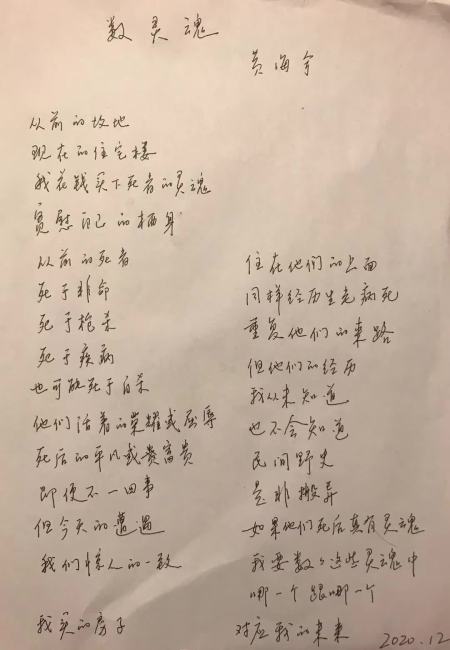 数灵魂
黄海兮
从前的坟地
现在的住宅楼
我花钱买下死者的灵魂
宽慰自己的栖身
从前的死者
死于非命
死于枪杀
死于疾病
也可能死于自杀
他们活着的荣耀或屈辱
死后的平凡或贵富贵
即便不一回事
但今天的遭遇
我们惊人的一致
我买的房子
住在他们的上面
同样经历生老病死
重复他们的来路
但他们的经历
我从来知道
也不会知道
民间野史
是非搬弄
如果他们死后真有灵魂
我要数々这些灵魂中
哪一个跟哪一个
对应我的未来
2020.12